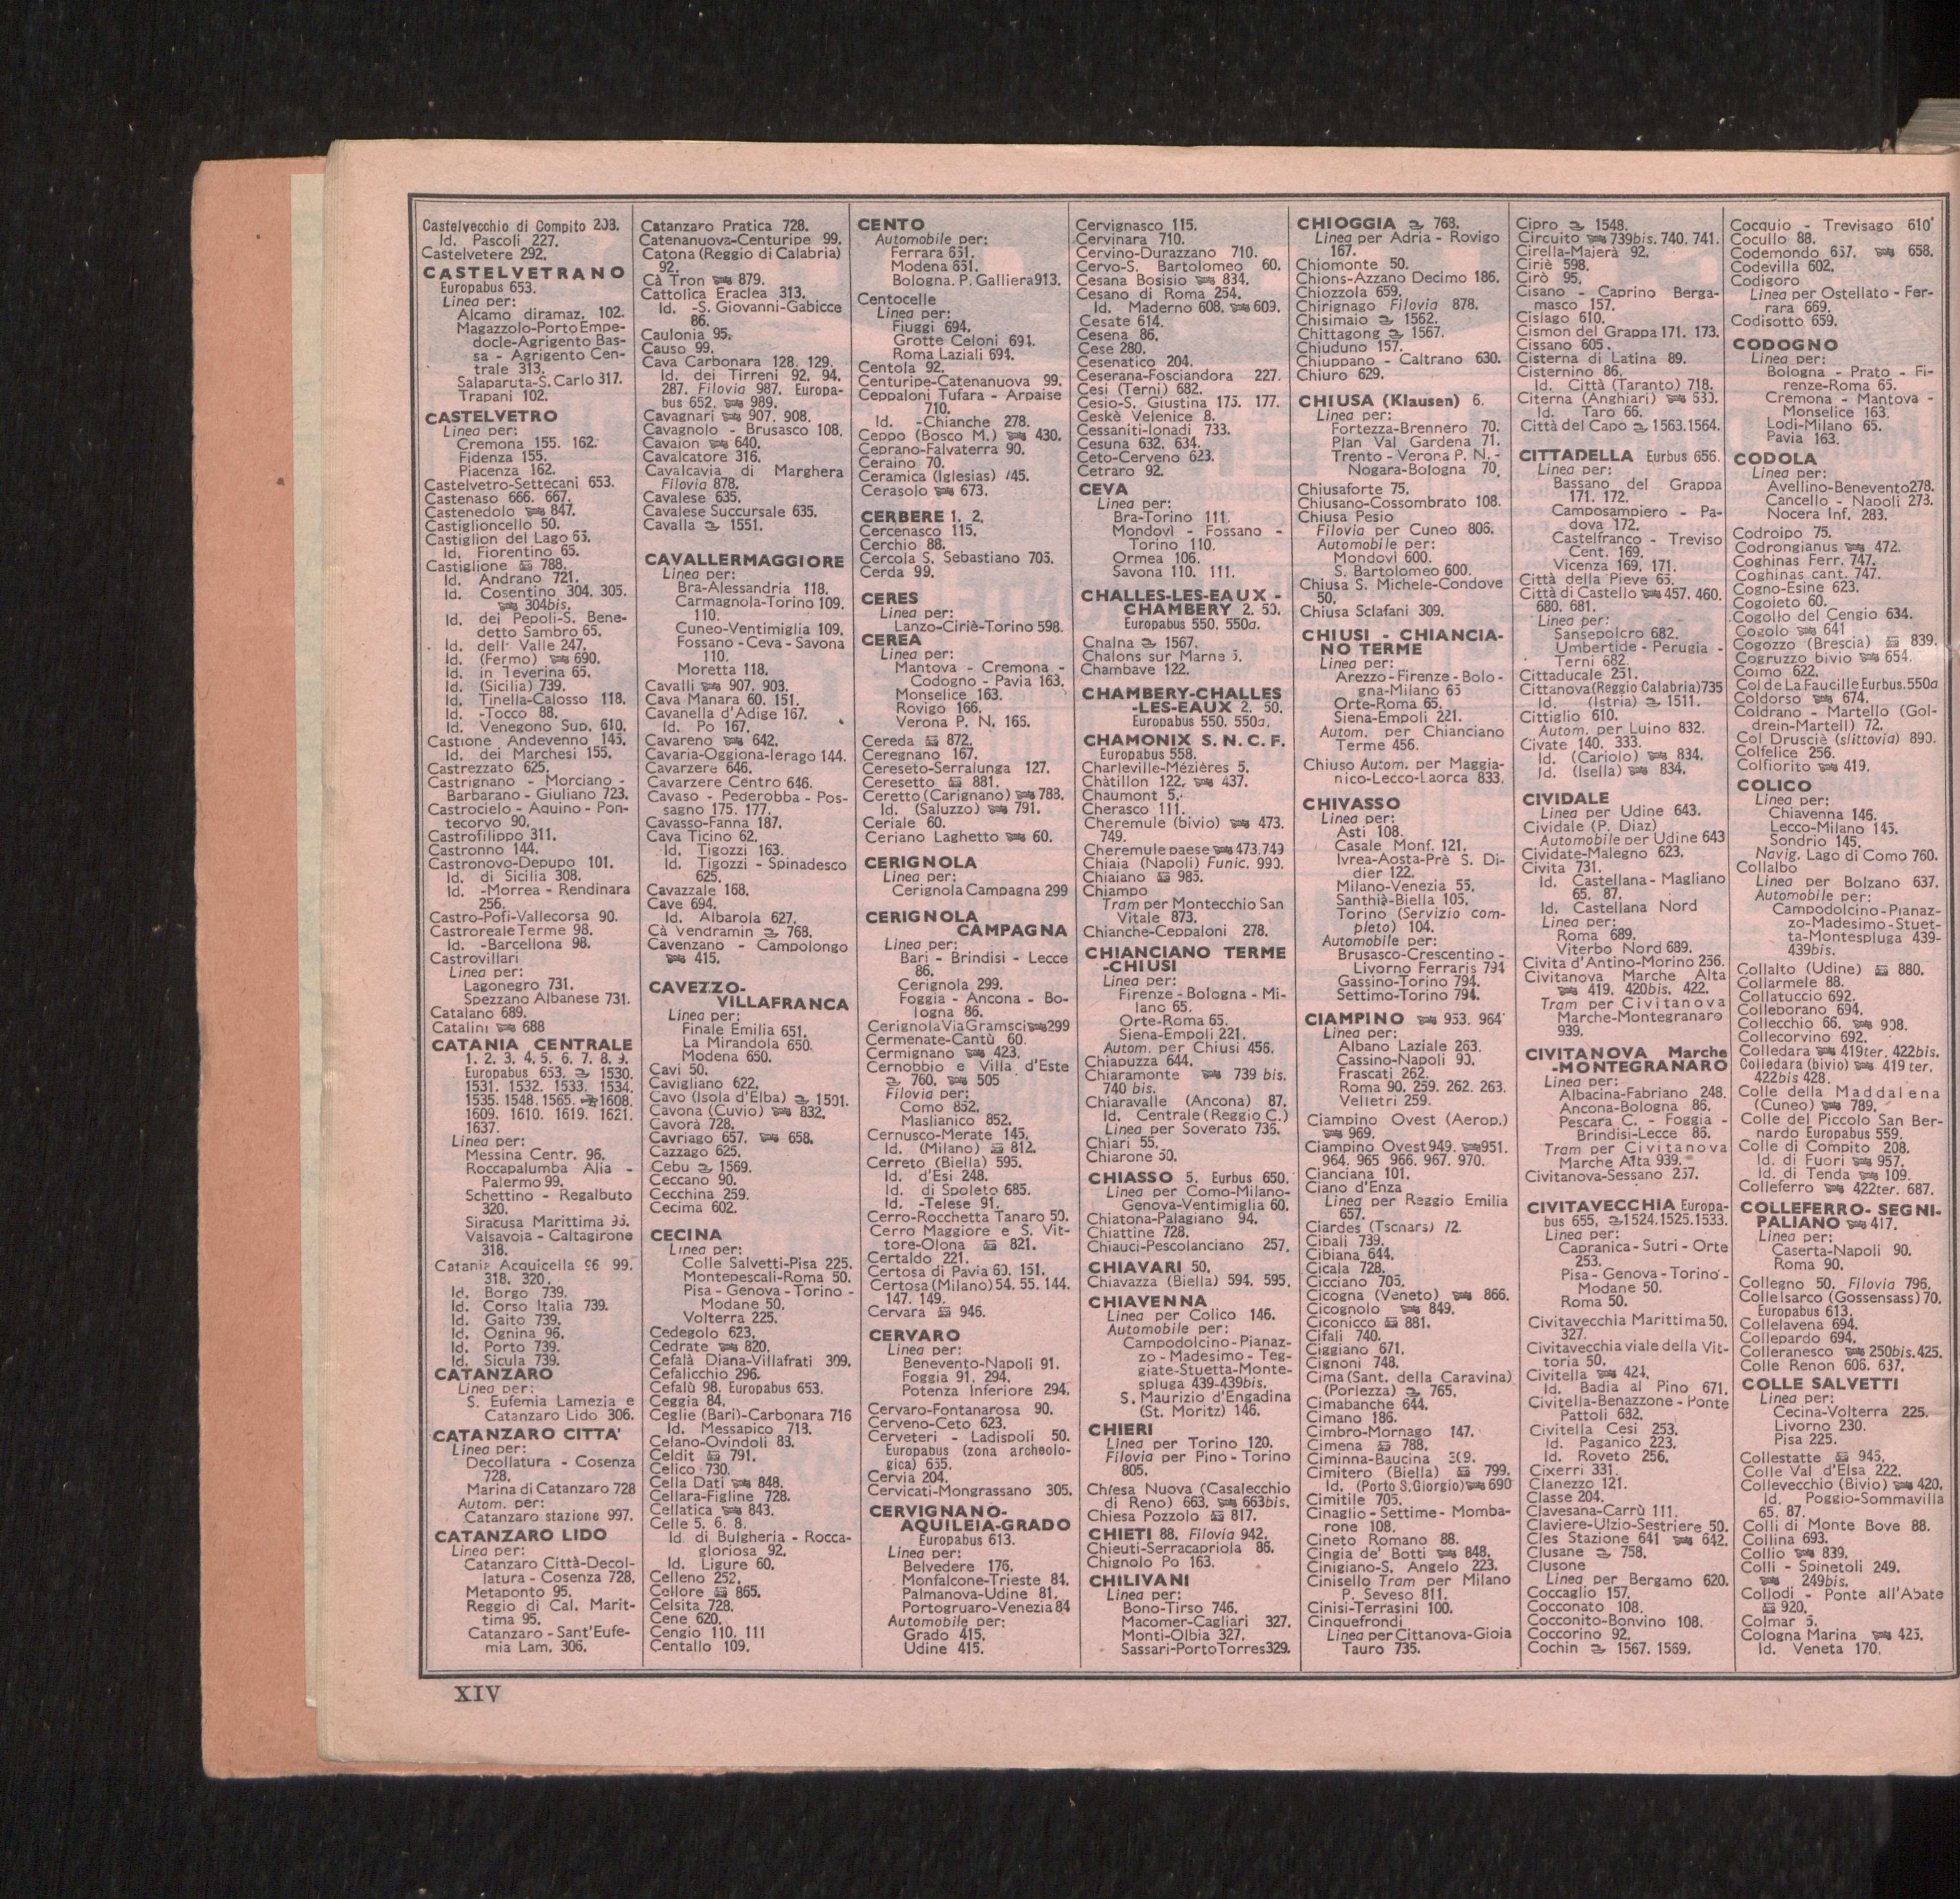 Castelvecchio di Compito 208.
Id. Pascoli 227.
Castelvetere 292.
CASTELVETRANO
Europabus 653.
Linea per:
Alcamo diramaz. 102.
Magazzolo-Porto Empe-
docle-Agrigento Bas-
sa - Agrigento Cen-
trale 313.
Salaparuta-S. Carlo 317.
Trapani 102.
CASTELVETRO
Linea per:
Cremona 155. 162.
Fidenza 155.
Piacenza 162.
Castelvetro-Settecani 653.
Castenaso 666. 667.
Castenedolo 847.
Castiglioncello 50.
Castiglion del Lago 65.
Id. Fiorentino 65.
Castiglione 788.
Id. Andrano 721.
Id. Cosentino 304. 305.
304bis.
Id. dei Pepoli-S. Bene-
detto Sambro 65.
Id. dell' Valle 247.
Id. (Fermo) 690.
Id. in Teverina 65.
Id. (Sicilia) 739.
Id. Tinella-Calosso 118.
Id. -Tocco 88.
Id. Venegono Sup. 610.
Castione Andevenno 145.
Id. dei Marchesi 155.
Castrezzato 625.
Castrignano - Morciano -
Barbarano - Giuliano 723.
Castrocielo - Aquino - Pon-
tecorvo 90.
Castrofilippo 311.
Castronno 144.
Castronovo-Depupo 101.
Id. di Sicilia 308.
Id. -Morrea - Rendinara
256.
Castro-Pofi-Vallecorsa 90.
Castroreale Terme 98.
Id. -Barcellona 98.
Castrovillari
Linea per:
Lagonegro 731.
Spezzano Albanese 731.
Catalano 689.
Catalini 688
CATANIA CENTRALE
1. 2. 3. 4. 5. 6. 7. 8. 9.
Europabus 653. 1530.
1531. 1532. 1533. 1534.
1535. 1548. 1565. 1608.
1609. 1610. 1619. 1621.
1637.
Linea per:
Messina Centr. 96.
Roccapalumba Alia -
Palermo 99.
Schettino - Regalbuto
320.
Siracusa Marittima 95.
Valsavoia - Caltagirone
318.
Catania Acquicella 96 99.
318. 320.
Id. Borgo 739.
Id. Corso Italia 739.
Id. Gaito 739.
Id. Ognina 96.
Id. Porto 739.
Id. Sicula 739.
CATANZARO
Linea per:
S. Eufemia Lamezia e
Catanzaro Lido 306.
CATANZARO CITTA'
Linea per:
Decollatura - Cosenza
728.
Marina di Catanzaro 728
Autom. per:
Catanzaro stazione 997.
CATANZARO LIDO
Linea per:
Catanzaro Città-Decol-
latura - Cosenza 728.
Metaponto 95.
Reggio di Cal. Marit-
tima 95.
Catanzaro - Sant'Eufe-
mia Lam. 306.
Catanzaro Pratica 728.
Catenanuova-Centuripe 99.
Catona (Reggio di Calabria)
92.
Cà Tron 879.
Cattolica Eraclea 313.
Id. -S. Giovanni-Gabicce
86.
Caulonia 95.
Causo 99.
Cava Carbonara 128. 129.
Id. dei Tirreni 92. 94.
287. Filovia 987. Europa-
bus 652. 989.
Cavagnari 907. 908.
Cavagnolo - Brusasco 108.
Cavaion 640.
Cavalcatore 316.
Cavalcavia di Marghera
Filovia 878.
Cavalese 635.
Cavalese Succursale 635.
Cavalla 1551.
CAVALLERMAGGIORE
Linea per:
Bra-Alessandria 118.
Carmagnola-Torino 109.
110.
Cuneo-Ventimiglia 109.
Fossano - Ceva - Savona
110.
Moretta 118.
Cavalli 907. 903.
Cava Manara 60. 151.
Cavanella d'Adige 167.
Id. Po 167.
Cavareno 642.
Cavaria-Oggiona-Ierago 144.
Cavarzere 646.
Cavarzere Centro 646.
Cavaso - Pederobba - Pos-
sagno 175. 177.
Cavasso-Fanna 187.
Cava Ticino 62.
Id. Tigozzi 163.
Id. Tigozzi - Spinadesco
625.
Cavazzale 168.
Cave 694.
Id. Albarola 627.
Cà Vendramin 768.
Cavenzano - Campolongo
415.
CAVEZZO-
VILLAFRANCA
Linea per:
Finale Emilia 651.
La Mirandola 650.
Modena 650.
Cavi 50.
Cavigliano 622.
Cavo (Isola d'Elba) 1501.
Cavona (Cuvio) 832.
Cavorà 728.
Cavriago 657. 658.
Cazzago 625.
Cebu 1569.
Ceccano 90.
Cecchina 259.
Cecima 602.
CECINA
Linea per:
Colle Salvetti-Pisa 225.
Montepescali-Roma 50.
Pisa - Genova - Torino -
Modane 50.
Volterra 225.
Cedegolo 623.
Cedrate 820.
Cefalà Diana-Villafrati 309.
Cefalicchio 296.
Cefalù 98. Europabus 653.
Ceggia 84.
Ceglie (Bari)-Carbonara 716
Id. Messapico 718.
Celano-Ovindoli 83.
Celdit 791.
Celico 730.
Cella Dati 848.
Cellara-Figline 728.
Cellatica 843.
Celle 5. 6. 8.
Id. di Bulgheria - Rocca-
gloriosa 92.
Id. Ligure 60.
Celleno 252.
Cellore 865.
Celsita 728.
Cene 620.
Cengio 110. 111
Centallo 109.
CENTO
Automobile per:
Ferrara 651.
Modena 651.
Bologna. P. Galliera 913.
Centocelle
Linea per:
Fiuggi 694.
Grotte Celoni 694.
Roma Laziali 694.
Centola 92.
Centuripe-Catenanuova 99.
Ceppaloni Tufara - Arpaise
710.
Id. -Chianche 278.
Ceppo (Bosco M.) 430.
Ceprano-Falvaterra 90.
Ceraino 70.
Ceramica (Iglesias) 745.
Cerasolo 673.
CERBERE 1. 2.
Cercenasco 115.
Cerchio 88.
Cercola S. Sebastiano 705.
Cerda 99.
CERES
Linea per:
Lanzo-Ciriè-Torino 598.
CEREA
Linea per:
Mantova - Cremona -
Codogno - Pavia 163.
Monselice 163.
Rovigo 166.
Verona P. N. 165.
Cereda 872.
Ceregnano 167.
Cereseto-Serralunga 127.
Ceresetto 881.
Ceretto (Carignano) 788.
Id. (Saluzzo) 791.
Ceriale 60.
Ceriano Laghetto 60.
CERIGNOLA
Linea per:
Cerignola Campagna 299
CERIGNOLA
CAMPAGNA
Linea per:
Bari - Brindisi - Lecce
86.
Cerignola 299.
Foggia - Ancona - Bo-
logna 86.
Cerignola Via Gramsci 299
Cermenate-Cantù 60.
Cermignano 423.
Cernobbio e Villa d'Este
760. 505
Filovia per:
Como 852.
Maslianico 852.
Cernusco-Merate 145.
Id. (Milano) 812.
Cerreto (Biella) 595.
Id. d'Esi 248.
Id. di Spoleto 685.
Id. -Telese 91.
Cerro-Rocchetta Tanaro 50.
Cerro Maggiore e S. Vit-
tore-Olona 821.
Certaldo 221.
Certosa di Pavia 60. 151.
Certosa (Milano) 54. 55. 144.
147. 149.
Cervara 946.
CERVARO
Linea per:
Benevento-Napoli 91.
Foggia 91. 294.
Potenza Inferiore 294.
Cervaro-Fontanarosa 90.
Cerveno-Ceto 623.
Cerveteri - Ladispoli 50.
Europabus (zona archeolo-
gica) 655.
Cervia 204.
Cervicati-Mongrassano 305.
CERVIGNANO-
AQUILEIA-GRADO
Europabus 613.
Linea per:
Belvedere 176.
Monfalcone-Trieste 84.
Palmanova-Udine 81.
Portogruaro-Venezia 84
Automobile per:
Grado 415.
Udine 415.
Cervignasco 115.
Cervinara 710.
Cervino-Durazzano 710.
Cervo-S. Bartolomeo 60.
Cesana Bosisio 834.
Cesano di Roma 254.
Id. Maderno 608. 609.
Cesate 614.
Cesena 86.
Cese 280.
Cesenatico 204.
Ceserana-Fosciandora 227.
Cesi (Terni) 682.
Cesio-S. Giustina 175. 177.
Ceskè Velenice 8.
Cessaniti-Ionadi 733.
Cesuna 632. 634.
Ceto-Cerveno 623.
Cetraro 92.
CEVA
Linea per:
Bra-Torino 111.
Mondovì - Fossano -
Torino 110.
Ormea 106.
Savona 110. 111.
CHALLES-LES-EAUX -
CHAMBERY 2. 50.
Europabus 550. 550a.
Chalna 1567.
Chalons sur Marne 5.
Chambave 122.
CHAMBERY-CHALLES
-LES-EAUX 2. 50.
Europabus 550. 550a.
CHAMONIX S. N. C. F.
Europabus 558.
Charleville-Mézières 5.
Châtillon 122. 437.
Chaumont 5.
Cherasco 111.
Cheremule (bivio) 473.
749.
Cheremule paese 473.749
Chiaia (Napoli) Funic. 990.
Chiaiano 985.
Chiampo
Tram per Montecchio San
Vitale 873.
Chianche-Ceppaloni 278.
CHIANCIANO TERME
-CHIUSI
Linea per:
Firenze - Bologna - Mi-
lano 65.
Orte-Roma 65.
Siena-Empoli 221.
Autom. per Chiusi 456.
Chiapuzza 644.
Chiaramonte 739 bis.
740 bis.
Chiaravalle (Ancona) 87.
Id. Centrale (Reggio C.)
Linea per Soverato 735.
Chiari 55.
Chiarone 50.
CHIASSO 5. Eurbus 650.
Linea per Como-Milano-
Genova-Ventimiglia 60.
Chiatona-Palagiano 94.
Chiattine 728.
Chiauci-Pescolanciano 257.
CHIAVARI 50.
Chiavazza (Biella) 594. 595.
CHIAVENNA
Linea per Colico 146.
Automobile per:
Campodolcino-Pianaz-
zo - Madesimo - Teg-
giate-Stuetta-Monte-
spluga 439-439bis.
S. Maurizio d'Engadina
(St. Moritz) 146.
CHIERI
Linea per Torino 120.
Filovia per Pino - Torino
805.
Chiesa Nuova (Casalecchio
di Reno) 663. 663bis.
Chiesa Pozzolo 817.
CHIETI 88. Filovia 942.
Chieuti-Serracapriola 86.
Chignolo Po 163.
CHILIVANI
Linea per:
Bono-Tirso 746.
Macomer-Cagliari 327.
Monti-Olbia 327.
Sassari-Porto Torres 329.
CHIOGGIA 768.
Linea per Adria - Rovigo
167.
Chiomonte 50.
Chions-Azzano Decimo 186.
Chiozzola 659.
Chirignago Filovia 878.
Chisimaio 1562.
Chittagong 1567.
Chiuduno 157.
Chiuppano - Caltrano 630.
Chiuro 629.
CHIUSA (Klausen) 6.
Linea per:
Fortezza-Brennero 70.
Plan Val Gardena 71.
Trento - Verona P. N. -
Nogara-Bologna 70.
Chiusaforte 75.
Chiusano-Cossombrato 108.
Chiusa Pesio
Filovia per Cuneo 806.
Automobile per:
Mondovì 600.
S. Bartolomeo 600.
Chiusa S. Michele-Condove
50.
Chiusa Sclafani 309.
CHIUSI - CHIANCIA-
NO TERME
Linea per:
Arezzo - Firenze - Bolo-
gna-Milano 65
Orte-Roma 65.
Siena-Empoli 221.
Autom. per Chianciano
Terme 456.
Chiuso Autom. per Maggia-
nico-Lecco-Laorca 833.
CHIVASSO
Linea per:
Asti 108.
Casale Monf. 121.
Ivrea-Aosta-Prè S. Di-
dier 122.
Milano-Venezia 55.
Santhià-Biella 105.
Torino (Servizio com-
pleto) 104.
Automobile per:
Brusasco-Crescentino -
Livorno Ferraris 794
Gassino-Torino 794.
Settimo-Torino 794.
CIAMPINO 953. 964
Linea per:
Albano Laziale 263.
Cassino-Napoli 90.
Frascati 262.
Roma 90. 259. 262. 263.
Velletri 259.
Ciampino Ovest (Aerop.)
969.
Ciampino Ovest 949. 951.
964. 965 966. 967. 970.
Cianciana 101.
Ciano d'Enza
Linea per Reggio Emilia
657.
Ciardes (Tscnars) 72.
Cibali 739.
Cibiana 644.
Cicala 728.
Cicciano 705.
Cicogna (Veneto) 866.
Cicognolo 849.
Ciconicco 881.
Cifali 740.
Ciggiano 671.
Cignoni 748.
Cima (Sant. della Caravina)
(Porlezza) 765.
Cimabanche 644.
Cimano 186.
Cimbro-Mornago 147.
Cimena 788.
Ciminna-Baucina 309.
Cimitero (Biella) 799.
Id. (Porto S. Giorgio) 690
Cimitile 705.
Cinaglio - Settime - Momba-
rone 108.
Cineto Romano 88.
Cingia de' Botti 848.
Cinigiano-S. Angelo 223.
Cinisello Tram per Milano
P. Seveso 811.
Cinisi-Terrasini 100.
Cinquefrondi
Linea per Cittanova-Gioia
Tauro 735.
Cipro 1548.
Circuito 739bis. 740. 741.
Cirella-Majerà 92.
Ciriè 598.
Cirò 95.
Cisano - Caprino Berga-
masco 157.
Cislago 610.
Cismon del Grappa 171. 173.
Cissano 605.
Cisterna di Latina 89.
Cisternino 86.
Id. Città (Taranto) 718.
Citerna (Anghiari) 533.
Id. Taro 66.
Città del Capo 1563.1564.
CITTADELLA Eurbus 656.
Linea per:
Bassano del Grappa
171. 172.
Camposampiero - Pa-
dova 172.
Castelfranco - Treviso
Cent. 169.
Vicenza 169. 171.
Città della Pieve 65.
Città di Castello 457. 460.
680. 681.
Linea per:
Sansepolcro 682.
Umbertide - Perugia -
Terni 682.
Cittaducale 251.
Cittanova (Reggio Calabria) 735
Id. (Istria) 1511.
Cittiglio 610.
Autom. per Luino 832.
Civate 140. 333.
Id. (Cariolo) 834.
Id. (Isella) 834.
CIVIDALE
Linea per Udine 643.
Cividale (P. Diaz)
Automobile per Udine 643
Cividate-Malegno 623.
Civita 731.
Id. Castellana - Magliano
65. 87.
Id. Castellana Nord
Linea per:
Roma 689.
Viterbo Nord 689.
Civita d'Antino-Morino 256.
Civitanova Marche Alta
419. 420bis. 422.
Tram per Civitanova
Marche-Montegranaro
939.
CIVITANOVA Marche
-MONTEGRANARO
Linea per:
Albacina-Fabriano 248.
Ancona-Bologna 86.
Pescara C. - Foggia -
Brindisi-Lecce 86.
Tram per Civitanova
Marche Alta 939.
Civitanova-Sessano 257.
CIVITAVECCHIA Europa-
bus 655. 1524.1525.1533.
Linea per:
Capranica - Sutri - Orte
253.
Pisa - Genova - Torino -
Modane 50.
Roma 50.
Civitavecchia Marittima 50.
327.
Civitavecchia viale della Vit-
toria 50.
Civitella 424.
Id. Badia al Pino 671.
Civitella-Benazzone - Ponte
Pattoli 682.
Civitella Cesi 253.
Id. Paganico 223.
Id. Roveto 256.
Cixerri 331.
Clanezzo 121.
Classe 204.
Clavesana-Carrù 111.
Claviere-Ulzio-Sestriere 50.
Cles Stazione 641 642.
Clusane 758.
Clusone
Linea per Bergamo 620.
Coccaglio 157.
Cocconato 108.
Cocconito-Bonvino 108.
Coccorino 92.
Cochin 1567. 1569.
Cocquio - Trevisago 610
Cocullo 88.
Codemondo 657. 658.
Codevilla 602.
Codigoro
Linea per Ostellato - Fer-
rara 669.
Codisotto 659.
CODOGNO
Linea per:
Bologna - Prato - Fi-
renze-Roma 65.
Cremona - Mantova -
Monselice 163.
Lodi-Milano 65.
Pavia 163.
CODOLA
Linea per:
Avellino-Benevento 278.
Cancello - Napoli 273.
Nocera Inf. 283.
Codroipo 75.
Codrongianus 472.
Coghinas Ferr. 747.
Coghinas cant. 747.
Cogno-Esine 623.
Cogoleto 60.
Cogollo del Cengio 634.
Cogolo 641
Cogozzo (Brescia) 839.
Cogruzzo bivio 654.
Coimo 622.
Col de La Faucille Eurbus. 550a
Coldorso 674.
Coldrano - Martello (Gol-
drein-Martell) 72.
Col Drusciè (slittovia) 890.
Colfelice 256.
Colfiorito 419.
COLICO
Linea per:
Chiavenna 146.
Lecco-Milano 145.
Sondrio 145.
Navig. Lago di Como 760.
Collalbo
Linea per Bolzano 637.
Automobile per:
Campodolcino-Pianaz-
zo-Madesimo-Stuet-
ta-Montespluga 439-
439bis.
Collalto (Udine) 880.
Collarmele 88.
Collatuccio 692.
Colleporano 694.
Collecchio 66. 908.
Collecorvino 692.
Colledara 419ter. 422bis.
Colledara (bivio) 419 ter.
422bis 428.
Colle della Maddalena
(Cuneo) 789.
Colle del Piccolo San Ber-
nardo Europabus 559.
Colle di Compito 208.
Id. di Fuori 957.
Id. di Tenda 109.
Colleferro 422ter. 687.
COLLEFERRO- SEGNI-
PALIANO 417.
Linea per:
Caserta-Napoli 90.
Roma 90.
Collegno 50. Filovia 796.
Colle Isarco (Gossensass) 70.
Europabus 613.
Collelavena 694.
Collepardo 694.
Colleranesco 250bis.425.
Colle Renon 606. 637.
COLLE SALVETTI
Linea per:
Cecina-Volterra 225.
Livorno 230.
Pisa 225.
Collestatte 945.
Colle Val d'Elsa 222.
Collevecchio (Bivio) 420.
Id. Poggio-Sommavilla
65. 87.
Colli di Monte Bove 88.
Collina 693.
Collio 839.
Colli - Spinetoli 249.
249bis.
Collodi - Ponte all'Abate
920.
Colmar 5.
Cologna Marina 425.
Id. Veneta 170.
XIV